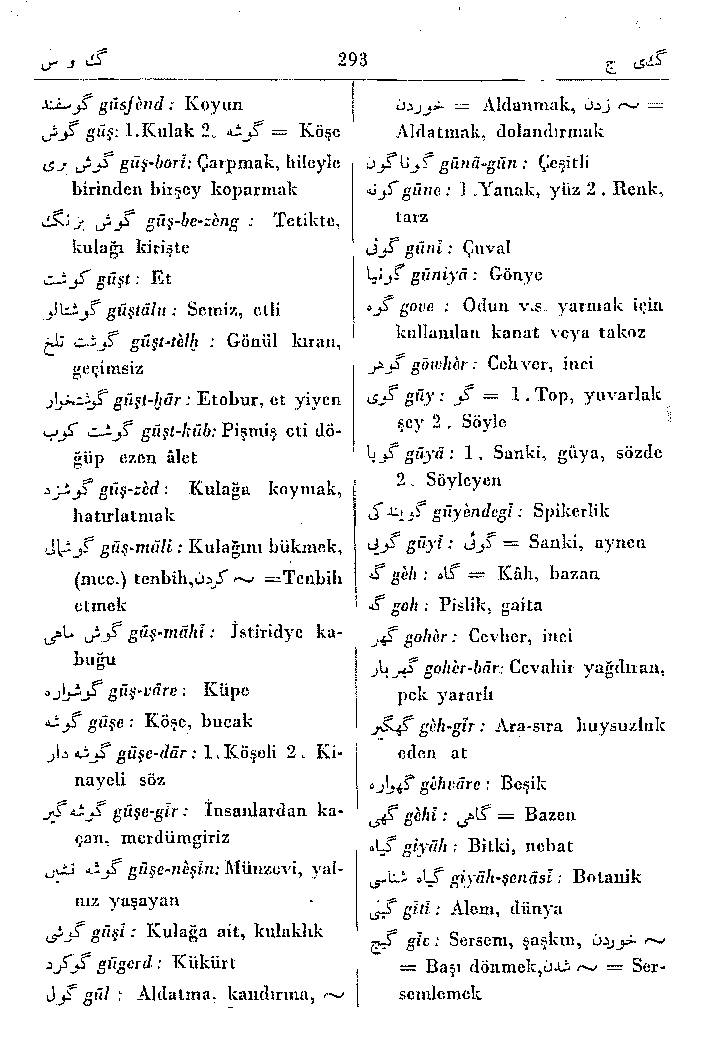 گ و س 293 گی ج
گوسفند gūsfènd : Koyun
گوش gūş: 1.Kulak 2. گوشه = Köşe
گوش بری gūş-borī: Çarpmak, hileyle
birinden birşey koparmak
گوش بزنگ gūş-be-zèng : Tetikte,
kulağı kirişte
گوشت gūşt : Et
گوشتالو gūştālu : Semiz, etli
گوشت تلخ gūşt-tèlḫ : Gönül kıran,
geçimsiz
گوشتخوار gūşt-ḫār : Etobur, et yiyen
گوشت کوب gūşt-kūb: Pişmiş eti dö-
ğüp ezen âlet
گوشزد gūş-zèd : Kulağa koymak,
hatırlatmak
گوشمالی gūş-mālī : Kulağını bükmek,
(mec.) tenbih, کردن ~ =Tenbih
etmek
گوش ماهی gūş-māhī : İstiridye ka-
buğu
گوشواره gūş-vāre : Küpe
گوشه gūşe : Köşe, bucak
گوشه دار gūşe-dār : 1.Köşeli 2. Ki-
nayeli söz
گوشه گیر gūşe-gīr : İnsanlardan ka-
çan, merdümgiriz
گوشه نشین gūşe-nèşīn: Münzevi, yal-
nız yaşayan
گوشی gūşī : Kulağa ait, kulaklık
گوگرد gūgerd : Kükürt
گول gūl : Aldatma, kandırma, ~
خوردن = Aldanmak, زدن ~ =
Aldatmak, dolandırmak
گوناگون gūnā-gūn : Çeşitli
گونه gūne : 1.Yanak, yüz 2. Renk,
tarz
گونی gūnī : Çuval
گونیا gūniyā : Gönye
گوه gove : Odun v.s. yarmak için
kullanılan kanat veya takoz
گوهر gōwhèr : Cehver, inci
گوی gūy : گو = 1. Top, yuvarlak
şey 2. Söyle
گویا gūyā : 1. Sanki, güya, sözde
2. Söyleyen
گویندگی gūyèndegī : Spikerlik
گویی gūyī : گوئی = Sanki, aynen
گه gèh : گاه = Kâh, bazan
گه goh : Pislik, gaita
گهر gohèr : Cevher, inci
گهر بار gohèr-bār: Cevahir yağdıran,
pek yararlı
گهگیر gèh-gīr : Ara-sıra huysuzluk
eden at
گهواره gèhvāre : Beşik
گهی gèhī : گاهی = Bazen
گیاه giyāh : Bitki, nebat
گیاه شناسی giyāh-şenāsī : Botanik
گیتی gītī : Alem, dünya
گیج gīc : Sersem, şaşkın, خوردن ~
= Başı dönmek, شدن ~ = Ser-
semlemek